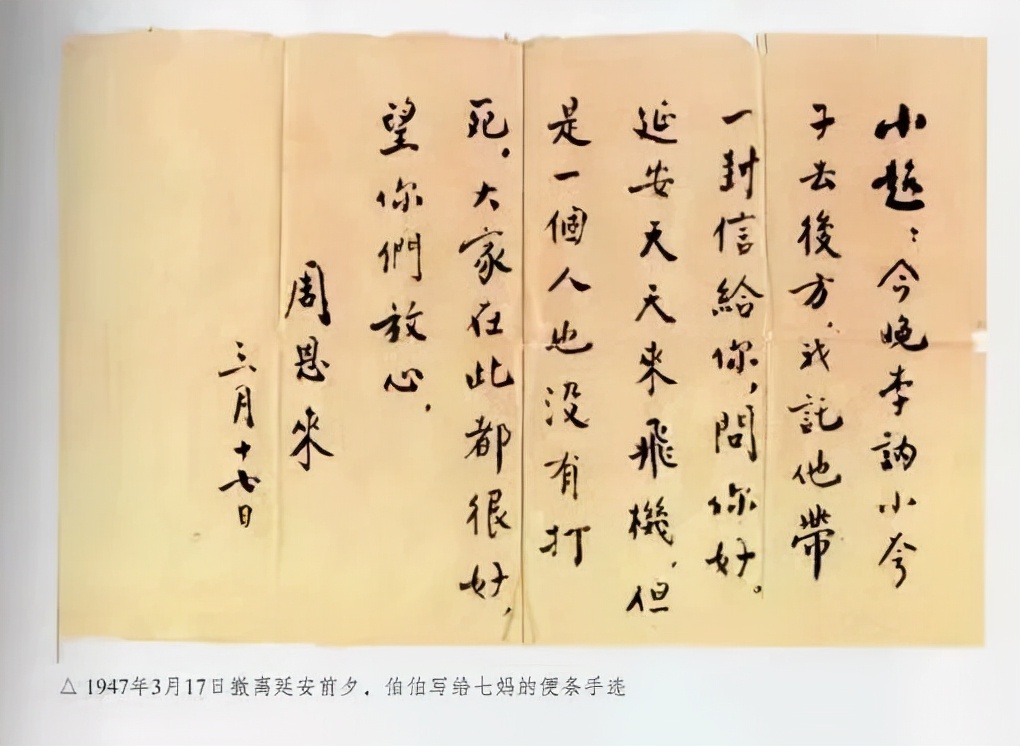 小超：今晚李訥小夸
子去後方，我託他帶
一封信給你，問你好。
延安天天來飛機，但
是一個人也没有打
死，大家在此都很好，
望你們放心，
周恩來
三月十七日
△ 1947年3月17日撤离延安前夕，伯伯写给七妈的便条手迹